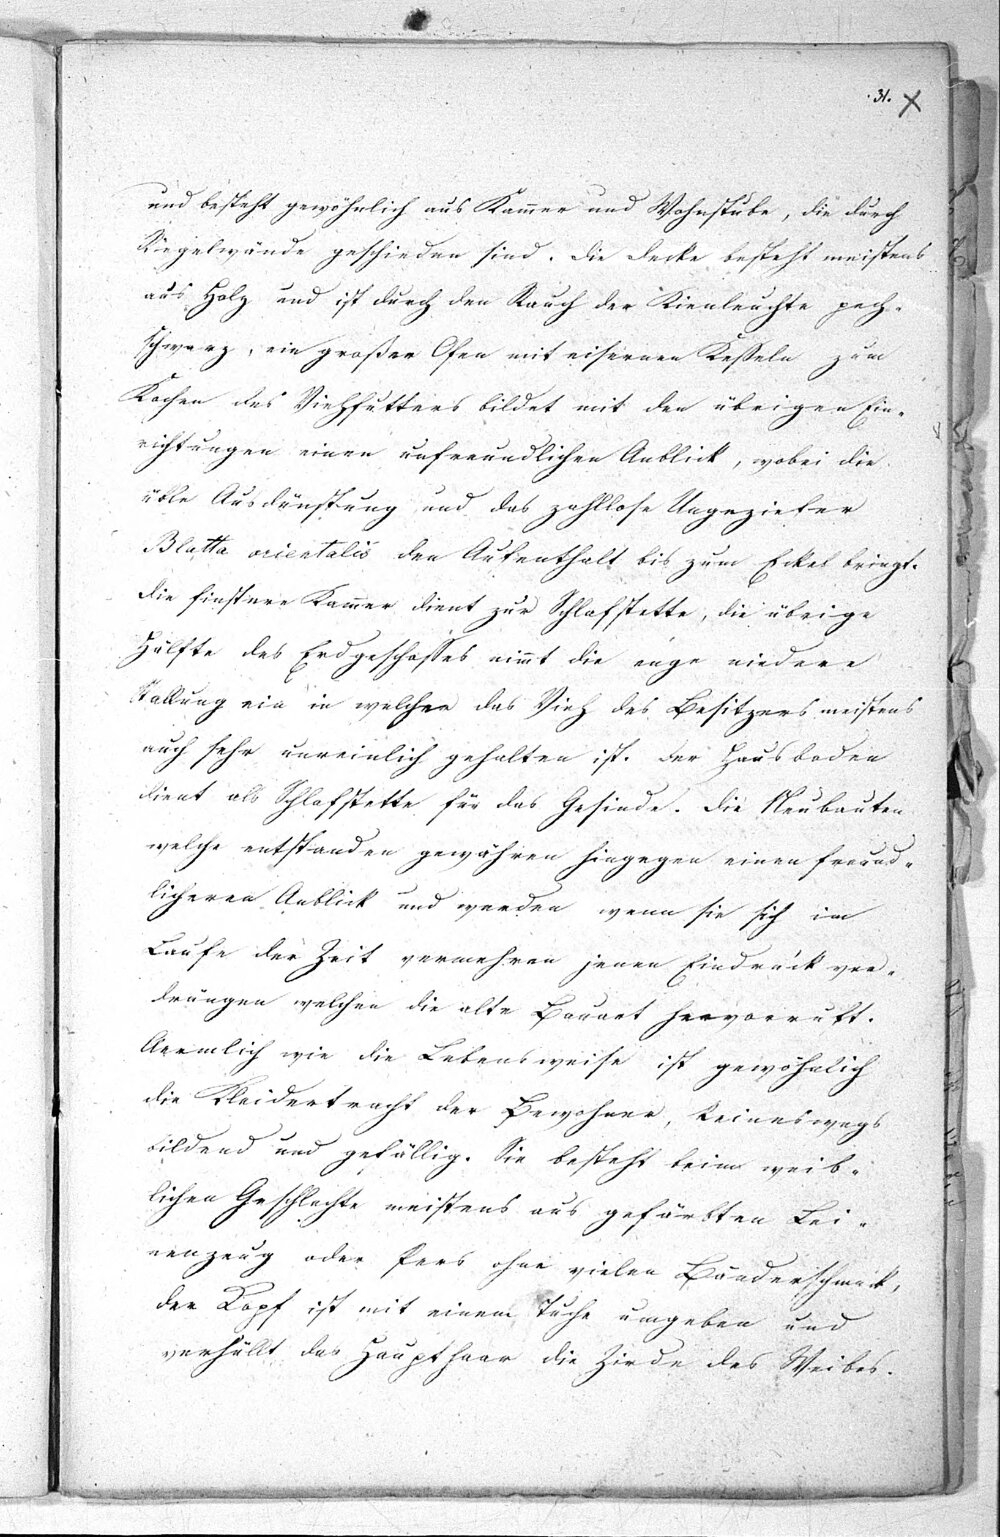 31. X
und besteht gewöhnlich aus Kam̅er und Wohnstube, die durch
Riegelwände geschieden sind. Die Decke besteht meistens
aus Holz und ist durch den Rauch der Kienleuchte pech-
schwarz, ein großer Ofen mit eisernen Kesseln zum
Kochen des Viehfutters bildet mit den übrigen Ein-
richtungen einen unfreundlichen Anblick, wobei die
üble Ausdünstung und das zahllose Ungeziefer
Blatta orientalis den Aufenthalt bis zum Eckel bringt.
Die finstere Kam̅er dient zur Schlafstette, die übrige
Hälfte des Erdgeschosses nim̅t die enge niedere
Stallung ein in welcher das Vieh des Besitzers meistens
auch sehr unreinlich gehalten ist. Der Hausboden
dient als Schlafstette für das Gesinde. Die Neubauten
welche entstanden gewähren hingegen einen freund-
licheren Anblick und werden wenn sie sich im
Laufe der Zeit vermehren jenen Eindruck ver-
drängen welchen die alte Bauart hervorruft.
Aermlich wie die Lebensweise ist gewöhnlich
die Kleidertracht der Bewohner, keineswegs
bildend und gefällig. Sie besteht beim weib-
lichen Geschlechte meistens aus gefärbten Lei-
nenzeug oder Pers ohne vielen Bänderschmuck,
der Kopf ist mit einem Tuche umgeben und
verhüllt das Haupthaar die Zirde des Weibes.